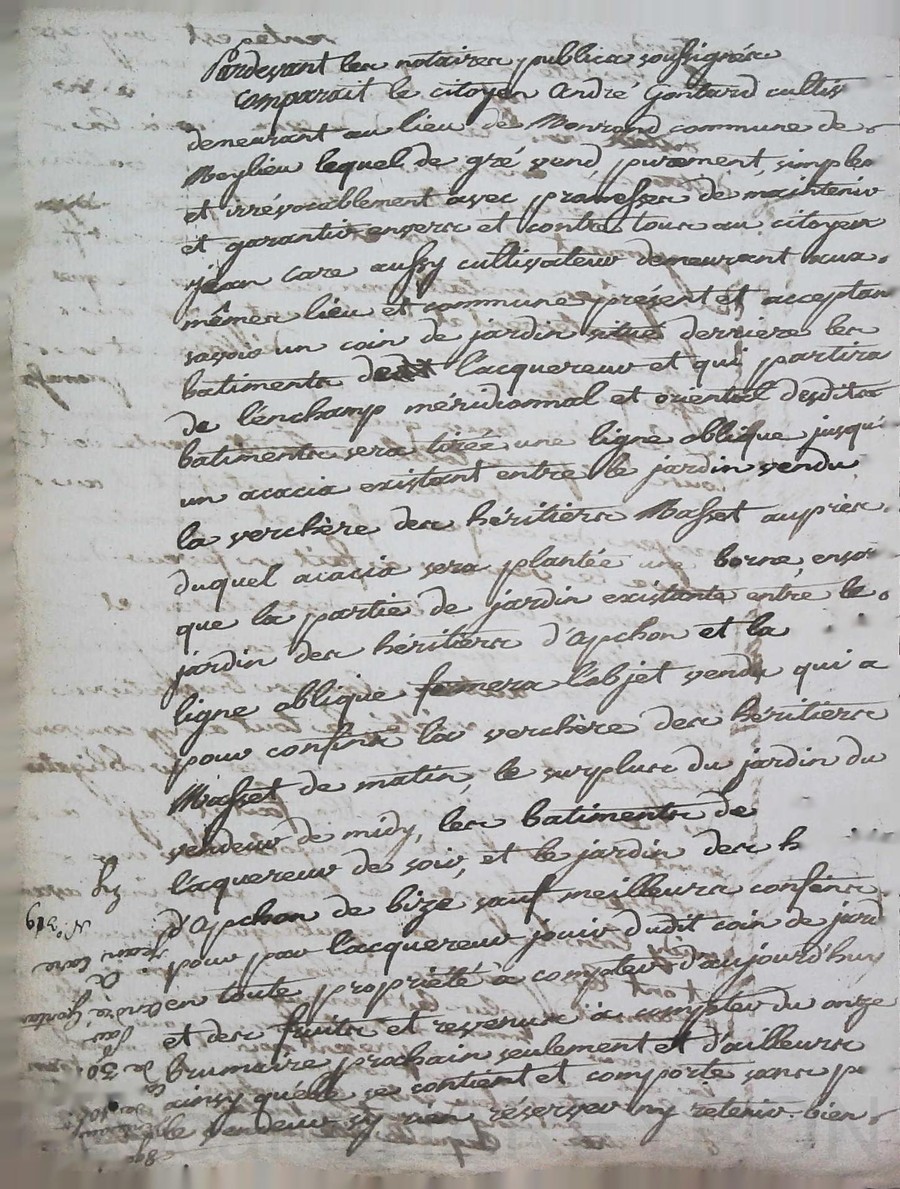 Pardevant les notaires publics soussignés
comparait le citoyen andré Gontard cultiv
demeurant au lieu de Monrond commune de
Meylieu lequel de gré vend purement, simplem
et irrévocablement avec promesses de maintenir
et garantir envers et contre tous au citoyen
jean Care aussy cultivateur demeurant aux
mêmes lieu et commune présent et acceptan
savoir un coin de jardin situé derriere les
batiments de l'acquereur et qui partira
de lenchamp méridionnal et oriental desdits
batiments sera tirée une ligne oblique jusqu'
un acacia existant entre le jardin vendu
la verchère des héritiers Masset auprès
duquel acacia sera plantée une borne, ensor
que la partie de jardin existante entre le
jardin des héritiers d'apchon et la
ligne oblique formera l'objet vendu qui a
pour confins la verchère des héritiers
Masset de matin, le surplus du jardin du
vendeur de midy, les batiments de
lacquereur de soir, et le jardin des h
d'apchon de bize sauf meilleurs confins
pour par lacquereur jouir dudit coin de jard
en toute propriété à compter d'aujourd'huy
et des fruits et revenus à compter du onze
brumaire prochain seulement et d'ailleurs
ainsy qu'elle se contient et comporte sans p
le vendeur s'y rien réserver ny retenir. bien
N.° 619
jean Care
a
andré Gontar